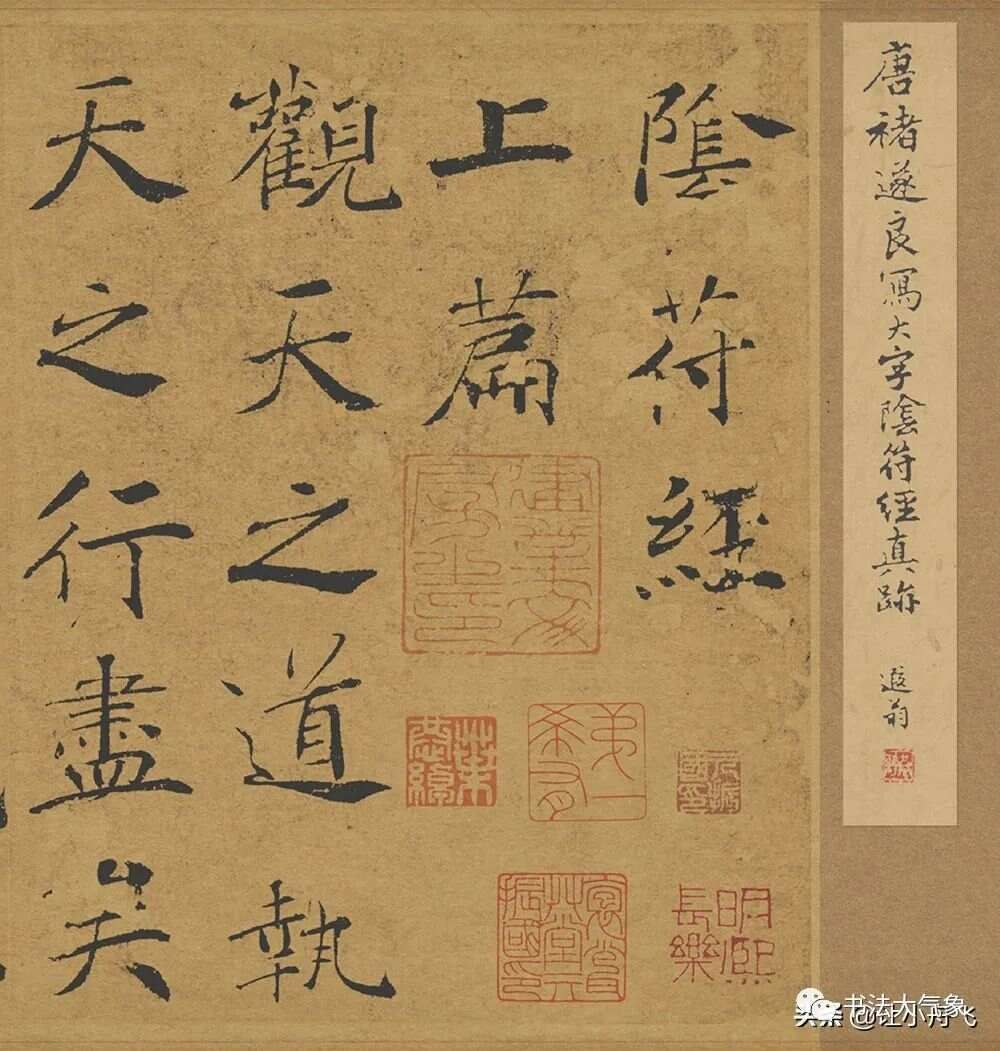 唐褚遂良寫大字陰符經真跡
遐翁
陰符經
上篇
觀天之道執
天之行盡矣
建業文房之印
明熙
長樂
书法大气象
头条 @红小丹飞